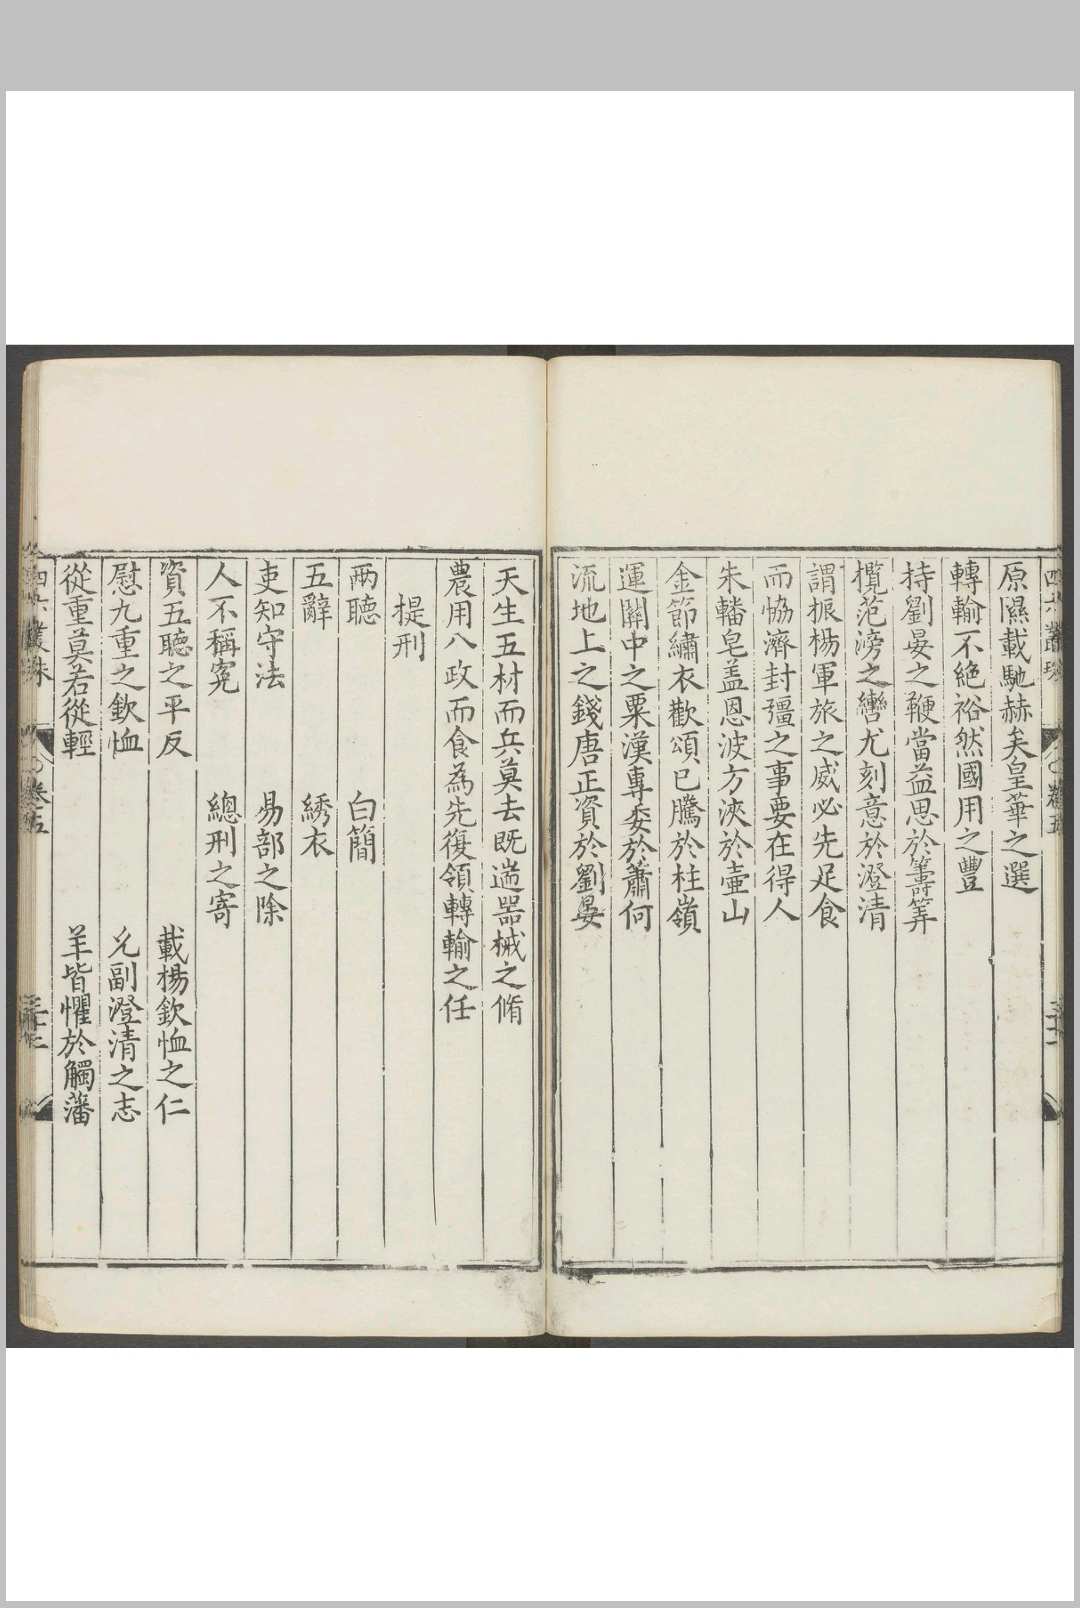 原濕載馳赫矣皇華之選
轉輸不絕裕然國用之豐
持劉晏之鞭當益思於籌筭
攬范滂之轡尤刻意於澄清
謂振楊軍旅之威必先足食
而恊濟封疆之事要在得人
朱轓皂盖恩波方浹於壷山
金節繡衣歡頌已騰於桂嶺
運關中之粟漢專委於蕭何
流地上之錢唐正資於劉晏
天生五材而兵莫去既耑器械之脩
農用八政而食為先復領轉輸之任
提刑
兩聽 白簡
五辭 綉衣
吏知守法 易部之除
人不稱寃 總刑之寄
資五聽之平反 載楊欽恤之仁
慰九重之欽恤 允副澄清之志
從重莫若從輕 羊皆懼於觸藩
四六叢珠 卷五